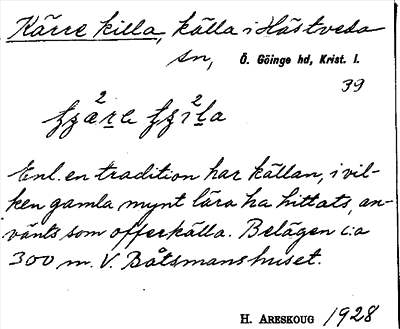 Kärre killa, källa i Hästveda
sn, Ö. Göinge hd, Krist. l.
39
Enl. en tradition har källan, i vil-
ken gamla mynt lära ha hittats, an-
vänts som offerkälla. Belägen c:a
300 m. V. Båtsmanshuset.
H. ARESKOUG 1928